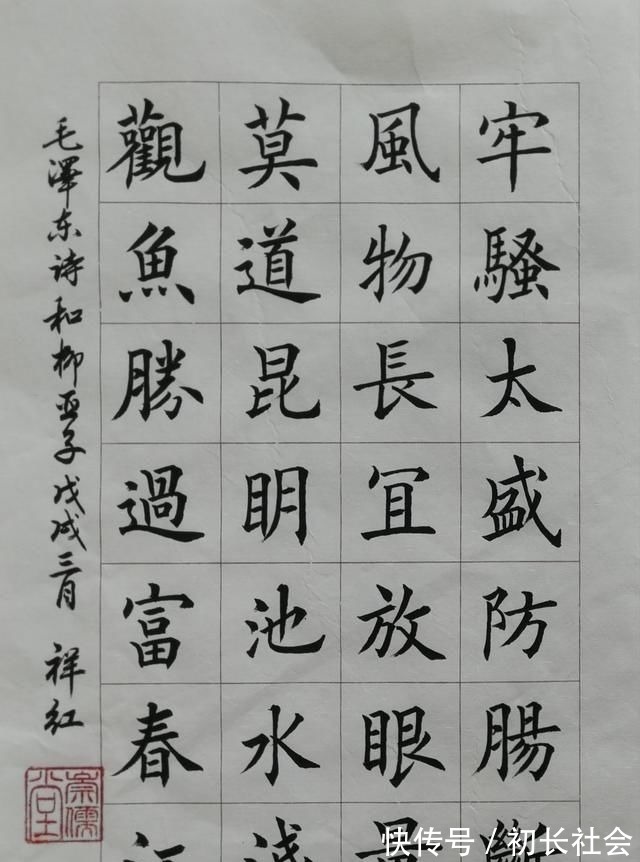 牢騷太盛防腸
風物長冝放眼
莫道昆眀池水
觀魚勝過富春
毛澤东诗和柳亚子戊戌三月 祥红
崇儒堂
快传号／初长社会